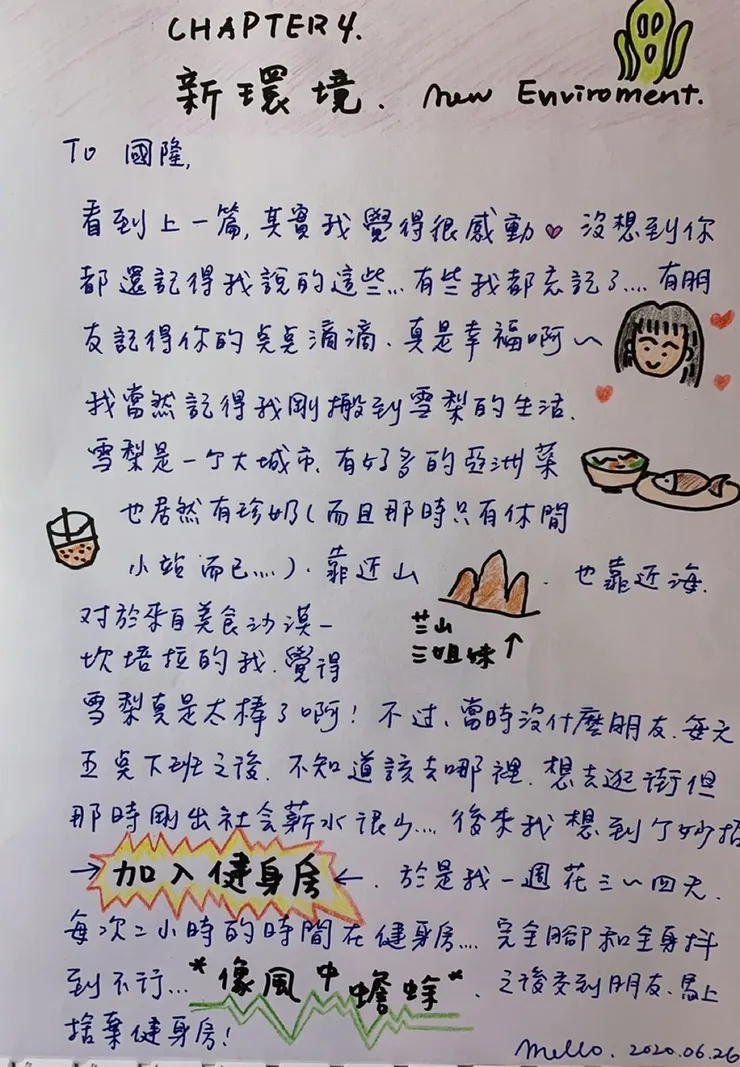 CHAPTER 4.
新環境. new Enviroment.
To 國隆,
看到上一篇,其實我覺得很感動♥ 沒想到你
都還記得我說的這些...有些我都忘記了....有朋
友記得你的點點滴滴、真是幸福啊~
我當然記得我剛搬到雪梨的生活.
雪梨是一个大城市、有好多的亞洲菜
也居然有珍奶(而且那時只有休閒
小站而已....)、靠近山 、也靠近海.
对於來自美食沙漠-
坎培拉的我、覺得
兰山
三姐妹↑
雪梨真是太棒了啊! 不过、當時沒什麼朋友、每天
五点下班之後、不知道該去哪裡、想去逛街但
那時剛出社会薪水很少... 後來我想到了妙招
→加入健身房←、於是我一週花三~四天、
每次二小時的時間在健身房... 完全腳和全身抖
到不行...*像風中蟾蜍*、之後交到朋友、馬上
捨棄健身房!
Mello. 2020.06.26